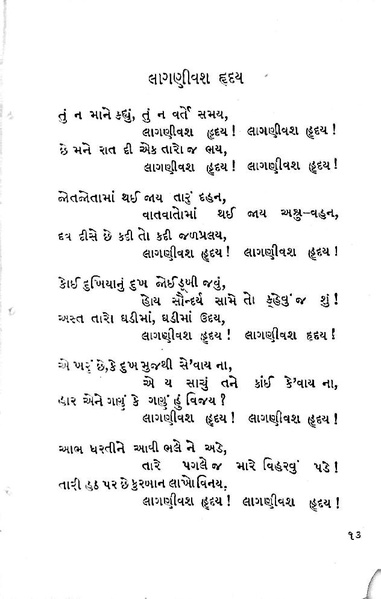 લાગણીવશ હૃદય
તું ન માને કહ્યું, તું ન વર્તે સમય,
લાગણીવશ હૃદય! લાગણીવશ હૃદય!
છે મને રાત દી એક તારો જ ભય,
લાગણીવશ હૃદય! લાગણીવશ હૃદય!
જોતજોતામાં થઈ જાય તારું દહન,
વાતવાતોમાં થઈ જાય અશ્રુ-વહન,
દવ દીસે છે કદી તો કદી જળપ્રલય,
લાગણીવશ હૃદય! લાગણીવશ હૃદય!
કોઈ દુખિયાનું દુખ જોઈ ડૂબી જવું,
હોય સૌન્દર્ય સામે તો કહેવું જ શું!
અસ્ત તારો ઘડીમાં, ઘડીમાં ઉદય,
લાગણીવશ હૃદય! લાગણીવશ હૃદય!
એ ખરું છે, કે દુખ મુજથી સે'વાય ના,
એ ય સાચું તને કાંઈ કે'વાય ના,
હાર એને ગણું કે ગણું હું વિજય?
લાગણીવશ હૃદય! લાગણીવશ હૃદય!
આભ ધરતીને આવી ભલે ને અડે,
તારે પગલે જ મારે વિહરવું પડે!
તારી હઠ પર છે કુરબાન લાખો વિનય.
લાગણીવશ હૃદય! લાગણીવશ હૃદય!
૧૩